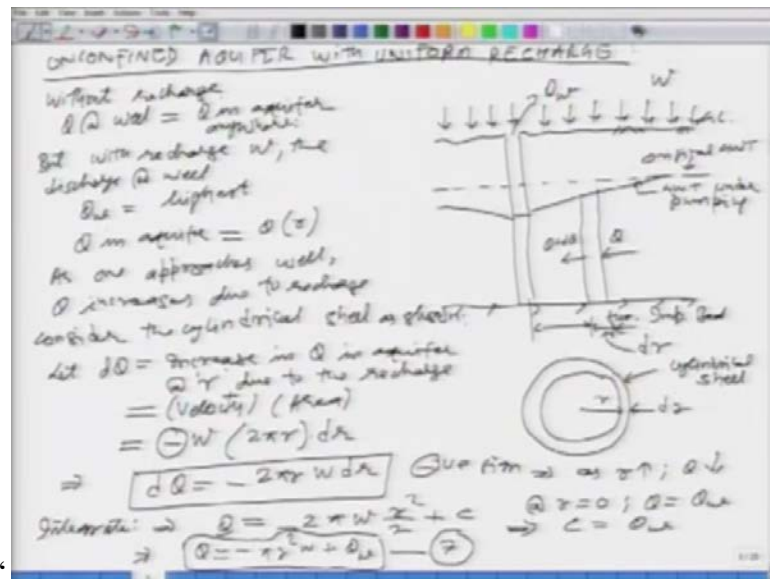 UNCONFINED AQUIFER WITH UNIFORM RECHARGE
Without recharge
Q @ well = Q in aquifer
anywhere.
But with recharge W, the
discharge @ well
Qw = highest
Q in aquifer = Q(r)
As one approaches well,
Q increases due to recharge
consider the cylindrical shell as shown.
Let dQ = Increase in Q in aquifer
@ 'r' due to the recharge
= (Velocity) (Area)
= -W (2πr) dr
⇒ dQ = -2πr W dr
-ve sign ⇒ as r↑; Q↓
Integrate: ⇒ Q = -2πW r²/2 + c
@ r=0; Q=Qw
⇒ c = Qw
⇒ Q = -πr²W + Qw — 7
Qw
W
G.L.
original GWT
GWT under
pumping
Q+dQ
Q
r
Imp. Bed
dr
cylindrical
shell
r
dr